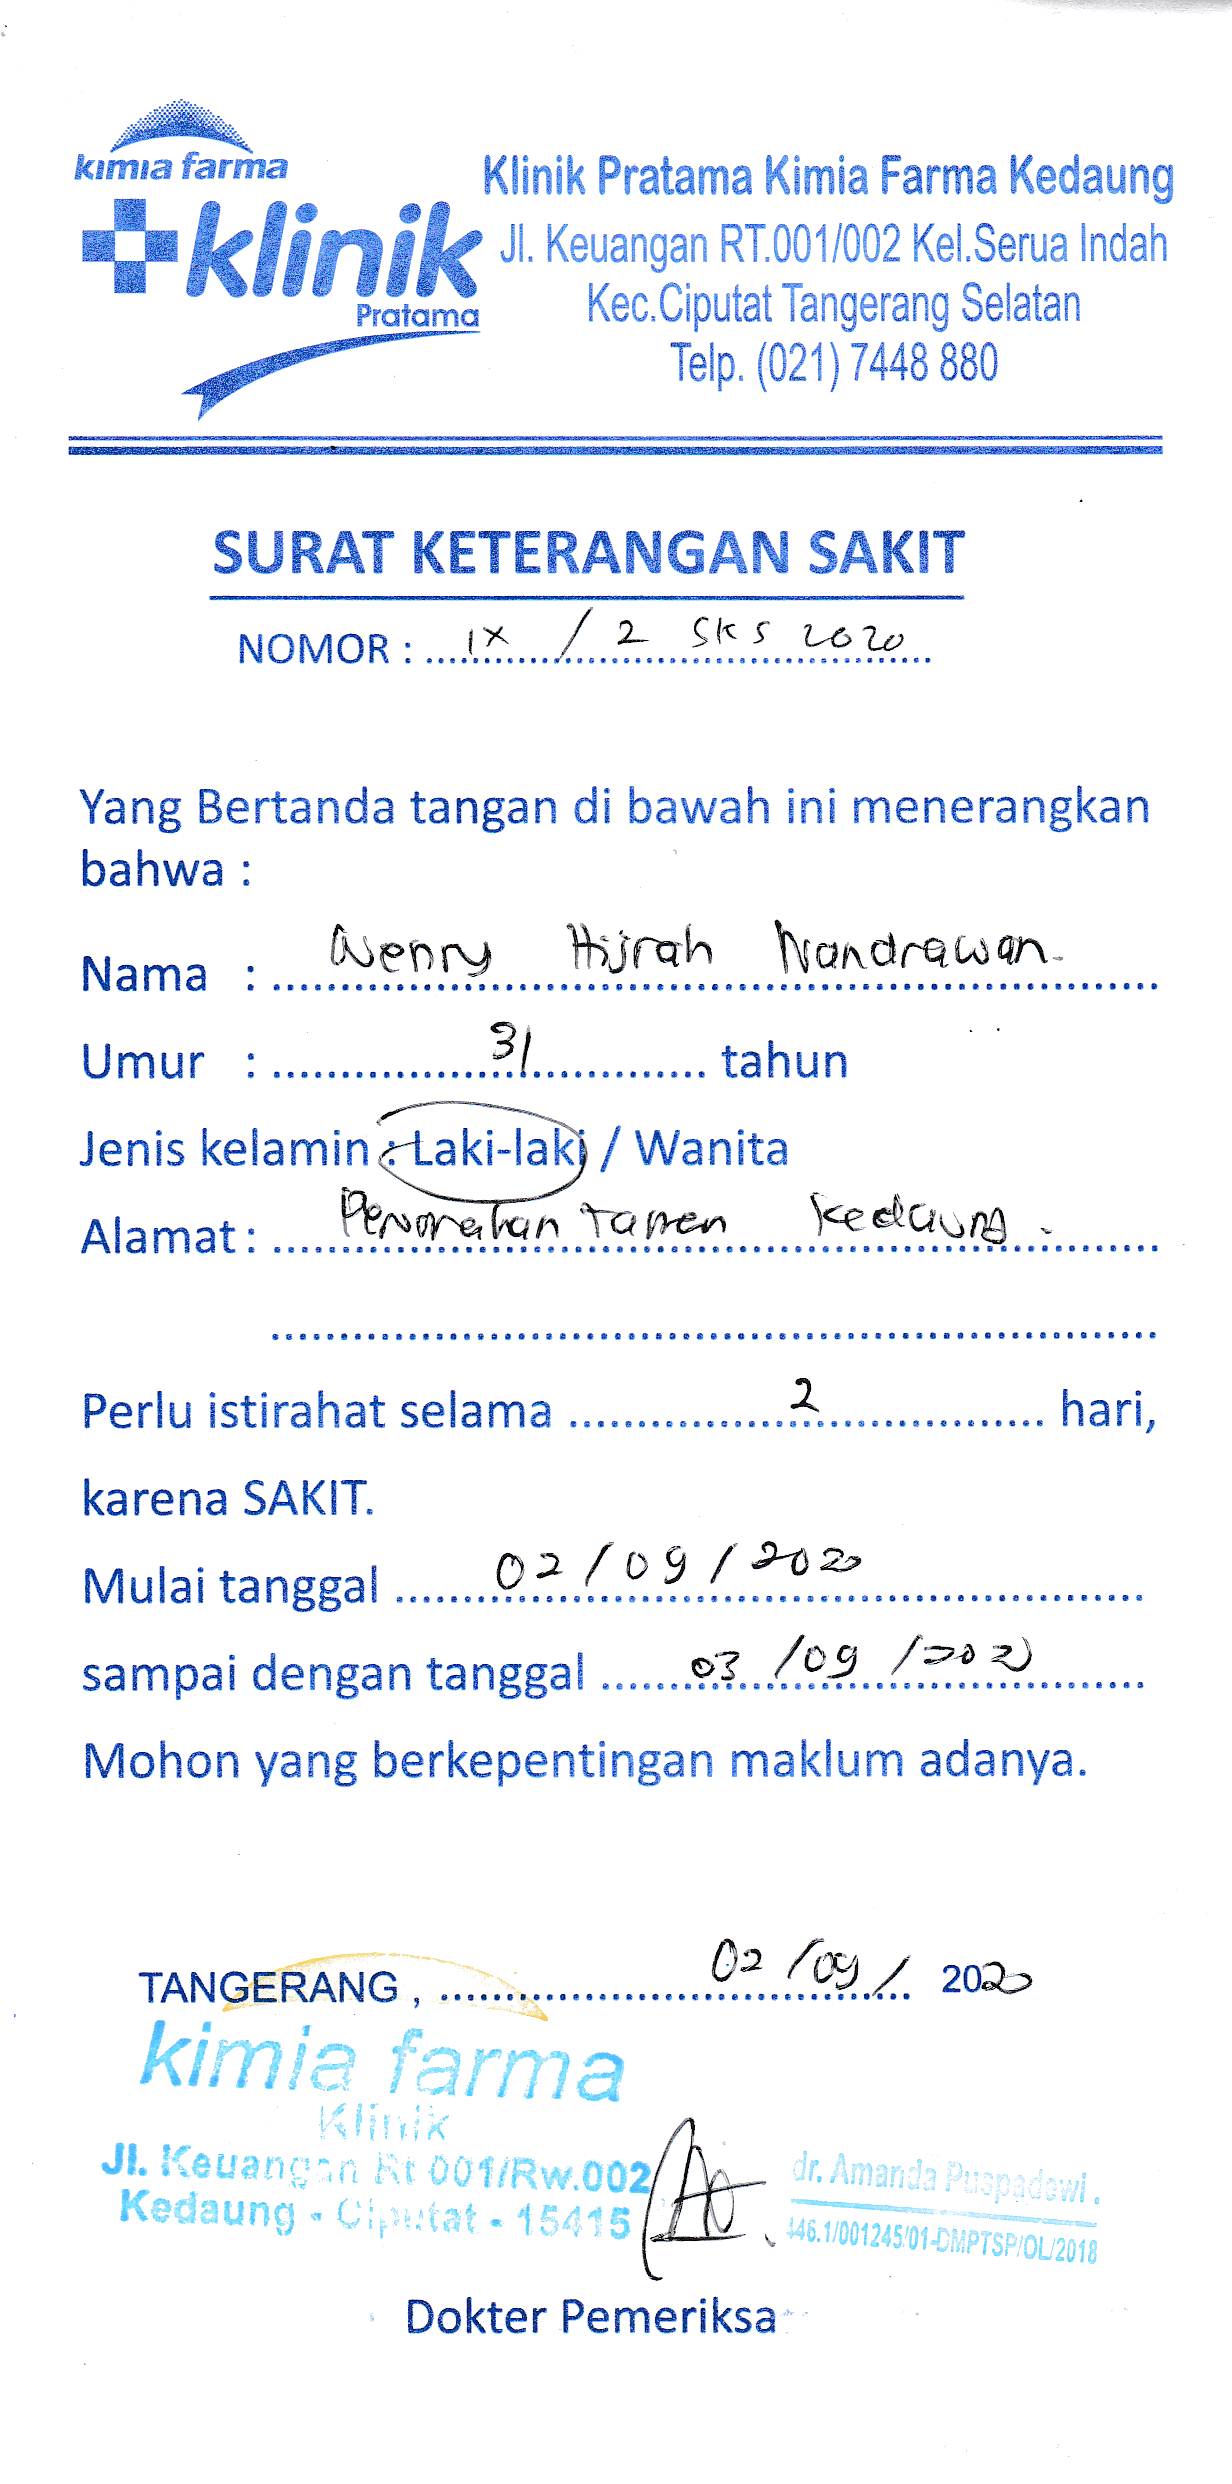 kimia farma
klinik
Pratama
Klinik Pratama Kimia Farma Kedaung
Jl. Keuangan RT.001/002 Kel.Serua Indah
Kec.Ciputat Tangerang Selatan
Telp. (021) 7448 880
SURAT KETERANGAN SAKIT
NOMOR : IX / 2 SKS 2020
Yang Bertanda tangan di bawah ini menerangkan
bahwa :
Nama : Wenry Hijrah Nandrawan.
Umur : 31 tahun
Jenis kelamin : Laki-laki / Wanita
Alamat : Perumahan Taman Kedaung.
Perlu istirahat selama 2 hari,
karena SAKIT.
Mulai tanggal 02/09/2020
sampai dengan tanggal 03/09/2020
Mohon yang berkepentingan maklum adanya.
TANGERANG, 02/09/ 2020
kimia farma
Klinik
Jl. Keuangan Rt 001/Rw.002
Kedaung - Ciputat - 15415
dr. Amanda Puspadewi.
446.1/001245/01-DMPTSP/OL/2018
Dokter Pemeriksa